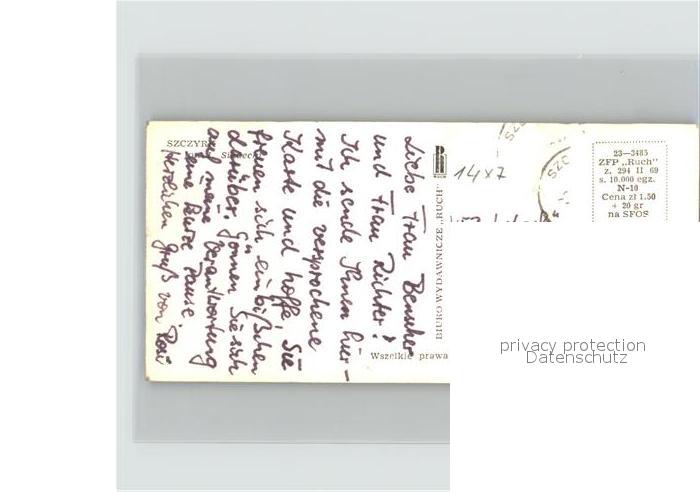 SZCZYRK
Liebe Frau Benscher
und Frau Richter!
Ich sende Ihnen hier-
mit die versprochene
Karte und hoffe, Sie
freuen sich ein bißchen
darüber. Gönnen Sie sich
auf meine Verantwortung
eine Pause.
Herzlichen Gruß von
BIURO WYDAWNICZE „RUCH"
14x7
Wszelkie prawa
23—3485
ZFP „Ruch"
z. 294 II 69
s. 10.000 egz.
N-10
Cena zł 1.50
+ 20 gr
na SFOS
privacy protection
Datenschutz